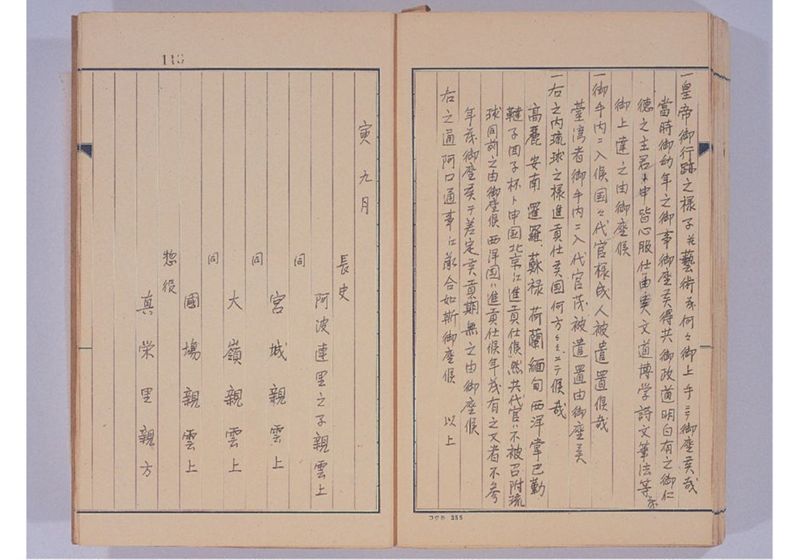 一皇帝御行跡之様子并藝術等何々御上手ニ而御座候哉
当時御幼年之御事御座候得共御政道明白有之御仁
徳之主君与申皆心服仕由兼而文道博学詩文筆法等不
御上達之由御座候
一御手内ニ入候国々代官様成人被遣置候哉
臺湾者御手内ニ入代官茂被遣置由御座候
一右之内琉球之様進貢仕候国何方々ニ而候哉
高麗安南暹羅蘇禄荷蘭緬甸西洋掌巴勤
韃子回子杯ト申国北京江進貢仕候然共代官ハ不被召附琉
球同前之由御座候西洋国ハ進貢仕候年茂有之又者不参
年茂御座候ニ而差定候貢期無之由御座候
右之通阿口通事江敢合如斯御座候 以上
113
寅九月
長史
阿波連里之子親雲上
同
宮城親雲上
同
大嶺親雲上
同
國場親雲上
惣役
真栄里親方
コクヨ 355